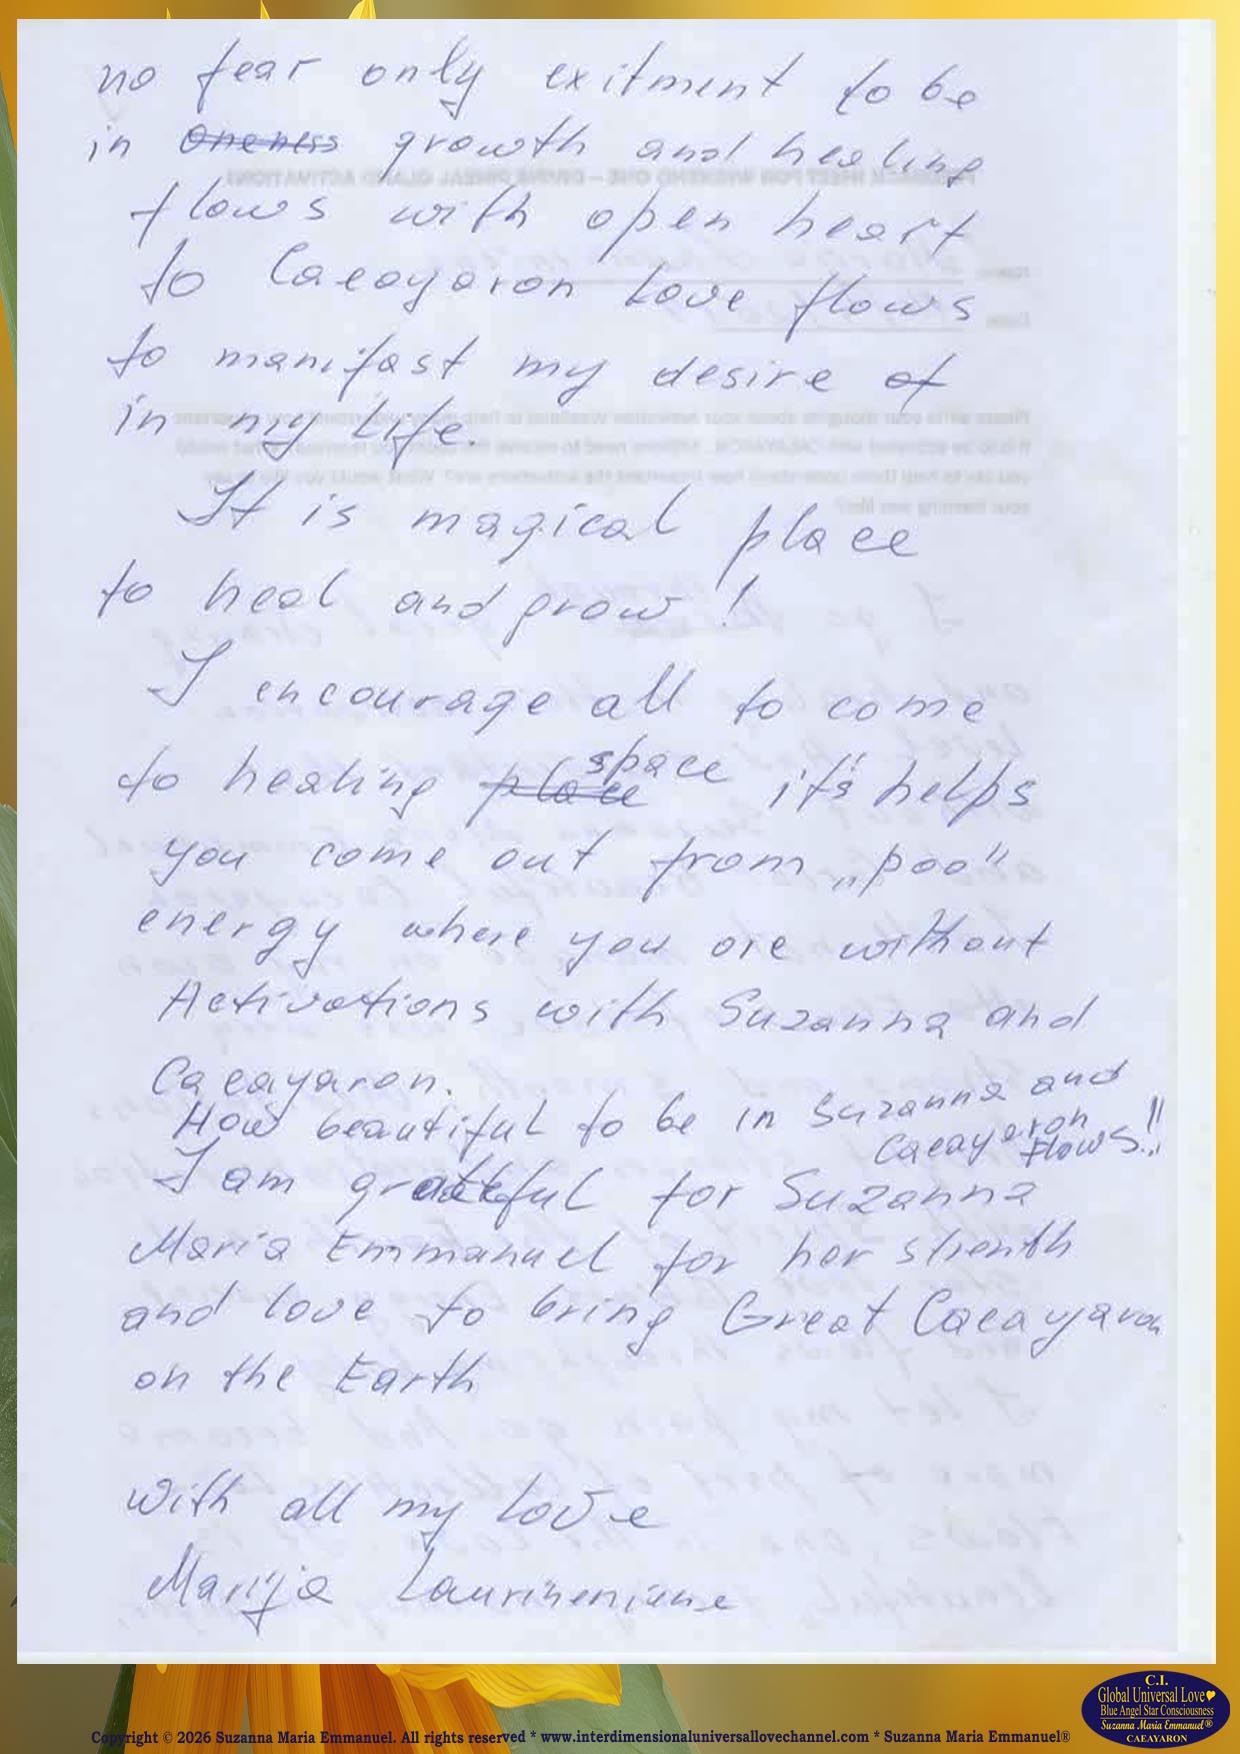 no fear only exitment to be
in Oneness growth and healing
flows with open heart
to Caeayaron Love flows
to manifast my desire of
in my Life.
It is magical place
to heal and grow!
I encourage all to come
to healing place space it's helps
you come out from „poo"
energy where you are without
Activations with Suzanna and
Caeayaron.
How beautiful to be in Suzanna and
Caeayaron Flows!!
I am grateful for Suzanna
Maria Emmanuel for her strenth
and love to bring Great Caeayaron
on the Earth
with all my Love
Marija
C.I.
Global Universal Love
Blue Angel Star Consciousness
Suzanna Maria Emmanuel®
CAEAYARON
Copyright © 2026 Suzanna Maria Emmanuel. All rights reserved * www.interdimensionaluniversallovechannel.com * Suzanna Maria Emmanuel®